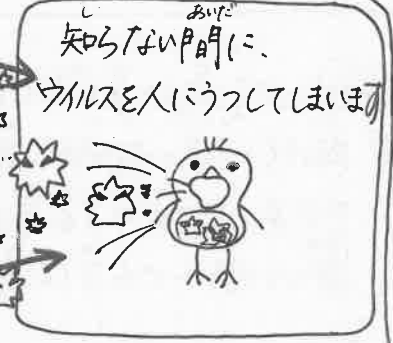 知らない間に、
ウイルスを人にうつしてしまいます